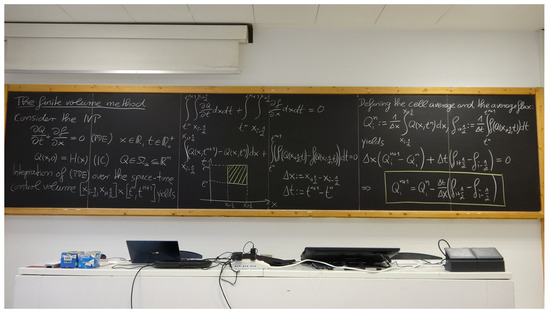 The finite volume method
Consider the IVP
∂Q/∂t + ∂f/∂x = 0 (PDE) x∈ℝ, t∈ℝ₀⁺
Q(x,0) = H(x) (IC) Q∈Ω_Q⊆ℝᵐ
Integration of (PDE) over the space-time
control volume [x_{i-1/2}, x_{i+1/2}]×[tⁿ, tⁿ⁺¹] yields
∫_{tⁿ}^{tⁿ⁺¹} ∫_{x_{i-1/2}}^{x_{i+1/2}} ∂Q/∂t dxdt + ∫_{tⁿ}^{tⁿ⁺¹} ∫_{x_{i-1/2}}^{x_{i+1/2}} ∂f/∂x dxdt = 0
∫_{x_{i-1/2}}^{x_{i+1/2}} (Q(x,tⁿ⁺¹) - Q(x,tⁿ)) dx + ∫_{tⁿ}^{tⁿ⁺¹} (f(x_{i+1/2},t) - f(x_{i-1/2},t)) dt = 0
t
tⁿ⁺¹
tⁿ
x_{i-1/2} x_{i+1/2} x
Δx := x_{i+1/2} - x_{i-1/2}
Δt := tⁿ⁺¹ - tⁿ
Defining the cell average and the average flux:
Q_iⁿ := 1/Δx ∫_{x_{i-1/2}}^{x_{i+1/2}} Q(x,tⁿ) dx f_{i+1/2} := 1/Δt ∫_{tⁿ}^{tⁿ⁺¹} f(Q(x_{i+1/2},t)) dt
yields
Δx (Q_iⁿ⁺¹ - Q_iⁿ) + Δt (f_{i+1/2} - f_{i-1/2}) = 0
⇒ Q_iⁿ⁺¹ = Q_iⁿ - Δt/Δx (f_{i+1/2} - f_{i-1/2})